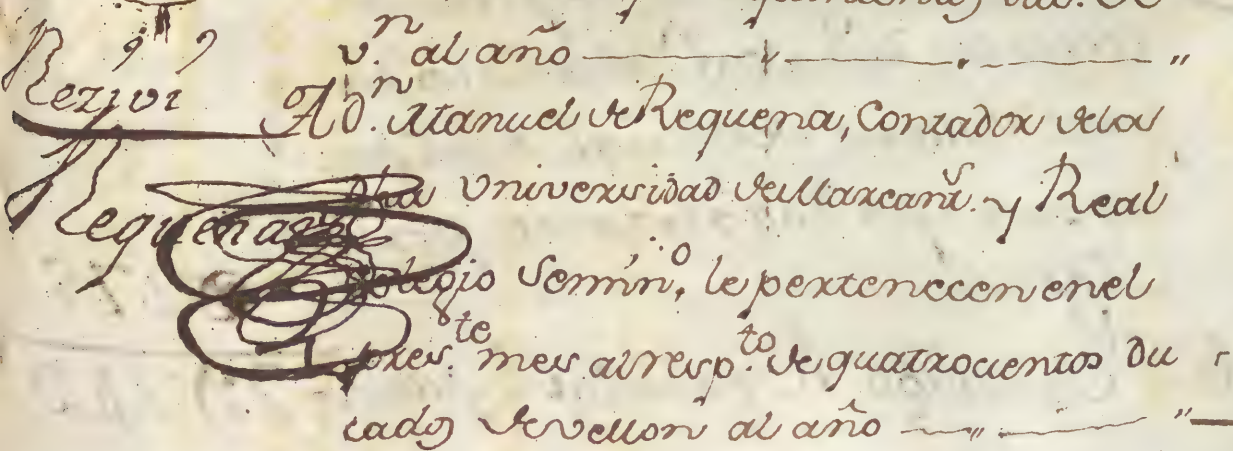 v.n al año
Rezivi
A D.n Manuel de Requena, Contador de la
dha Universidad de Mareant.s y Real
Requena
Colegio Semin.o le pertenecen en el
pres.te mes al resp.to de quatrocientos Du
cados de vellon al año